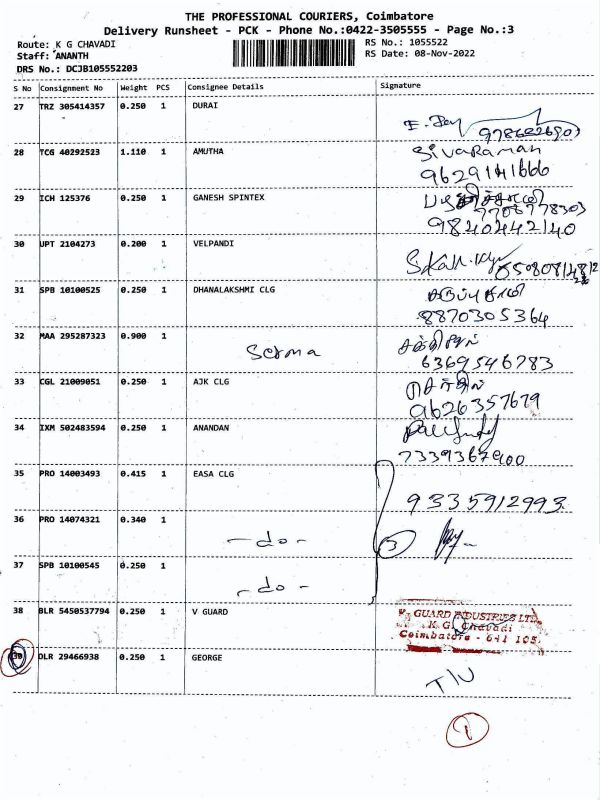 THE PROFESSIONAL COURIERS, Coimbatore
Delivery Runsheet - PCK - Phone No.:0422-3505555 - Page No.:3
Route: K G CHAVADI
RS No.: 1055522
Staff: ANANTH
RS Date: 08-Nov-2022
DRS No.: DCJB105552203
S No Consignment No Weight PCS Consignee Details Signature
27 TRZ 305414357 0.250 1 DURAI
28 TCG 40292523 1.110 1 AMUTHA SivaRaman
9629141666
29 ICH 125376 0.250 1 GANESH SPINTEX
7708778303
9840442140
30 UPT 2104273 0.200 1 VELPANDI
31 SPB 10100525 0.250 1 DHANALAKSHMI CLG
8870305364
32 MAA 295287323 0.900 1 சக்திவேல்
6369546783
33 CGL 21009051 0.250 1 AJK CLG செந்தில்
9626357679
34 IXM 502483594 0.250 1 ANANDAN
35 PRO 14003493 0.415 1 EASA CLG
9335912993
36 PRO 14074321 0.340 1
- do - 3
37 SPB 10100545 0.250 1
- do -
38 BLR 5450537794 0.250 1 V GUARD V-GUARD INDUSTRIES LTD.
K.G. Chavadi
Coimbatore - 641 105.
39 DLR 29466938 0.250 1 GEORGE